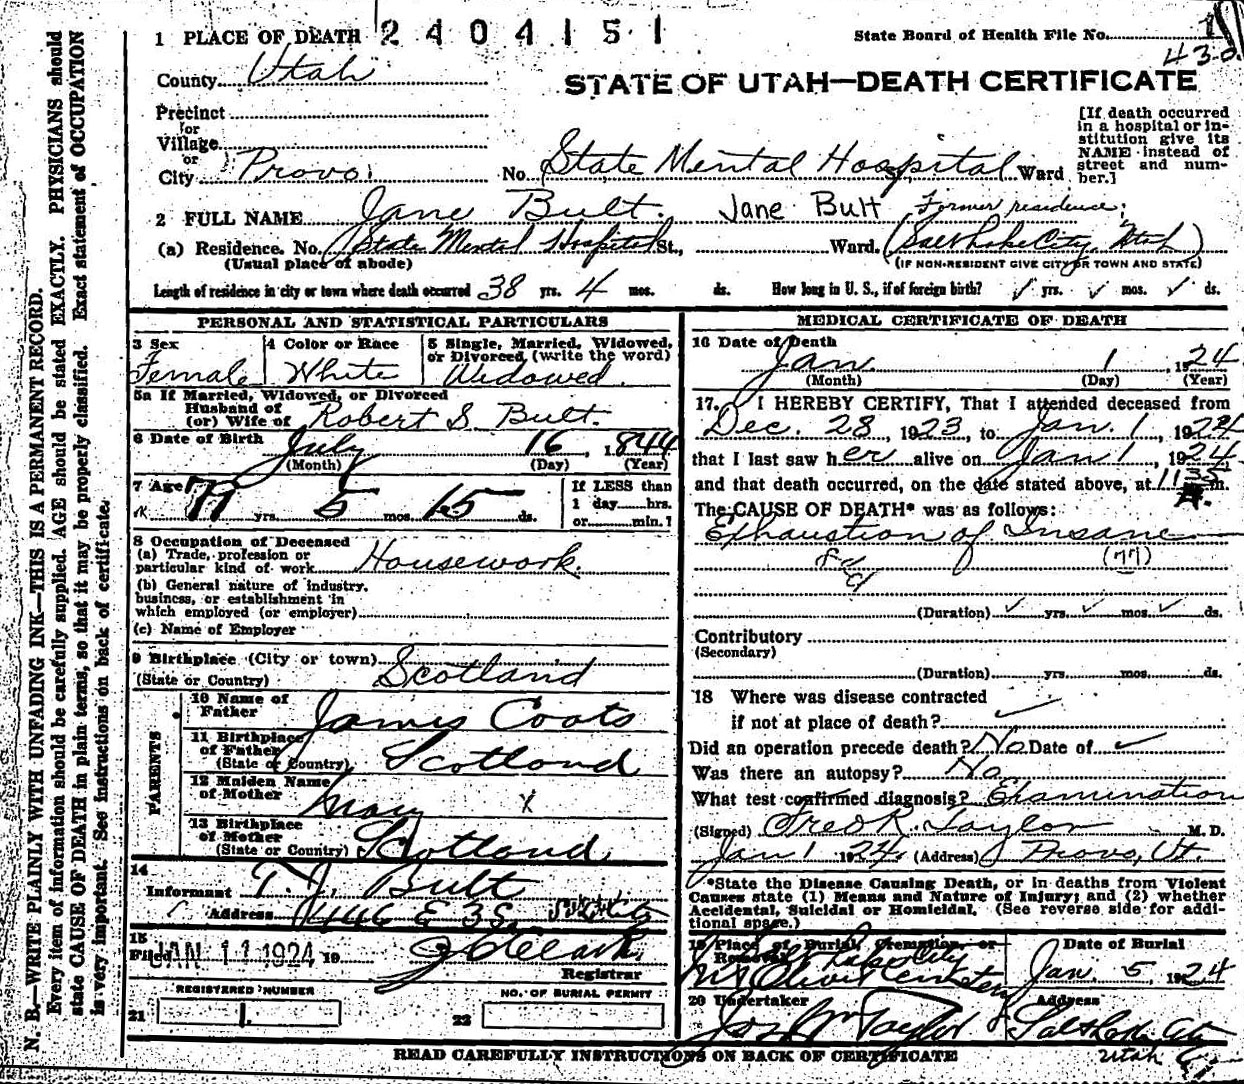 1 PLACE OF DEATH 2404151
State Board of Health File No. 1
430
County Utah
STATE OF UTAH—DEATH CERTIFICATE
Precinct
or
Village
or
City Provo. No. State Mental Hospital St. Ward
[If death occurred in a hospital or in-
stitution give its
NAME instead of
street and num-
ber.]
2 FULL NAME Jane Bult. Jane Bult Former residence,
(a) Residence. No. State Mental Hospital St., Ward. (Salt Lake City, Utah)
(Usual place of abode) (IF NON-RESIDENT GIVE CITY OR TOWN AND STATE)
Length of residence in city or town where death occurred 38 yrs. 4 mos. ds. How long in U. S., if of foreign birth? ✓ yrs. ✓ mos. ✓ ds.
PERSONAL AND STATISTICAL PARTICULARS
3 Sex 4 Color or Race 5 Single, Married, Widowed,
or Divorced (write the word)
Female White Widowed.
5a If Married, Widowed, or Divorced
Husband of
(or) Wife of Robert S. Bult.
6 Date of Birth July 16, 1844
(Month) (Day) (Year)
7 Age 79 yrs. 5 mos. 15 ds. If LESS than
1 day hrs.
or min.?
8 Occupation of Deceased
(a) Trade, profession or
particular kind of work Housework.
(b) General nature of industry,
business, or establishment in
which employed (or employer)
(c) Name of Employer
9 Birthplace (City or town)
(State or Country) Scotland
PARENTS
10 Name of
Father James Coats
11 Birthplace
of Father
(State or Country) Scotland
12 Maiden Name
of Mother Mary X
13 Birthplace
of Mother
(State or Country) Scotland
14
Informant T. J. Bult
Address 1446 E 3 So. S. L. City
15
Filed JAN 11 1924 19
Registrar
REGISTERED NUMBER NO. OF BURIAL PERMIT
21 1. 22
MEDICAL CERTIFICATE OF DEATH
16 Date of Death
Jan. 1, 1924
(Month) (Day) (Year)
17. I HEREBY CERTIFY, That I attended deceased from
Dec. 28, 1923, to Jan. 1, 1924
that I last saw her alive on Jan 1, 1924
and that death occurred, on the date stated above, at 1135 A. m.
The CAUSE OF DEATH* was as follows:
Exhaustion of Insane
(77)
(Duration) ✓ yrs. ✓ mos. ✓ ds.
Contributory
(Secondary)
(Duration) yrs. mos. ds.
18 Where was disease contracted
if not at place of death? ✓
Did an operation precede death? No Date of ✓
Was there an autopsy? No
What test confirmed diagnosis? Examination
(Signed) Fred R. Taylor M. D.
Jan 1 1924 (Address) Provo, Ut.
*State the Disease Causing Death, or in deaths from Violent
Causes state (1) Means and Nature of Injury; and (2) whether
Accidental, Suicidal or Homicidal. (See reverse side for addi-
tional space.)
19 Place of Burial, Cremation, or
Removal Salt Lake City
Mt Olivet Cemetery
Date of Burial
Jan. 5, 1924
20 Undertaker Address
Jos. Wm Taylor Salt Lake City
Utah
READ CAREFULLY INSTRUCTIONS ON BACK OF CERTIFICATE
N. B.—WRITE PLAINLY WITH UNFADING INK—THIS IS A PERMANENT RECORD.
Every item of information should be carefully supplied. AGE should be stated EXACTLY. PHYSICIANS should
state CAUSE OF DEATH in plain terms, so that it may be properly classified. Exact statement of OCCUPATION
is very important. See instructions on back of certificate.